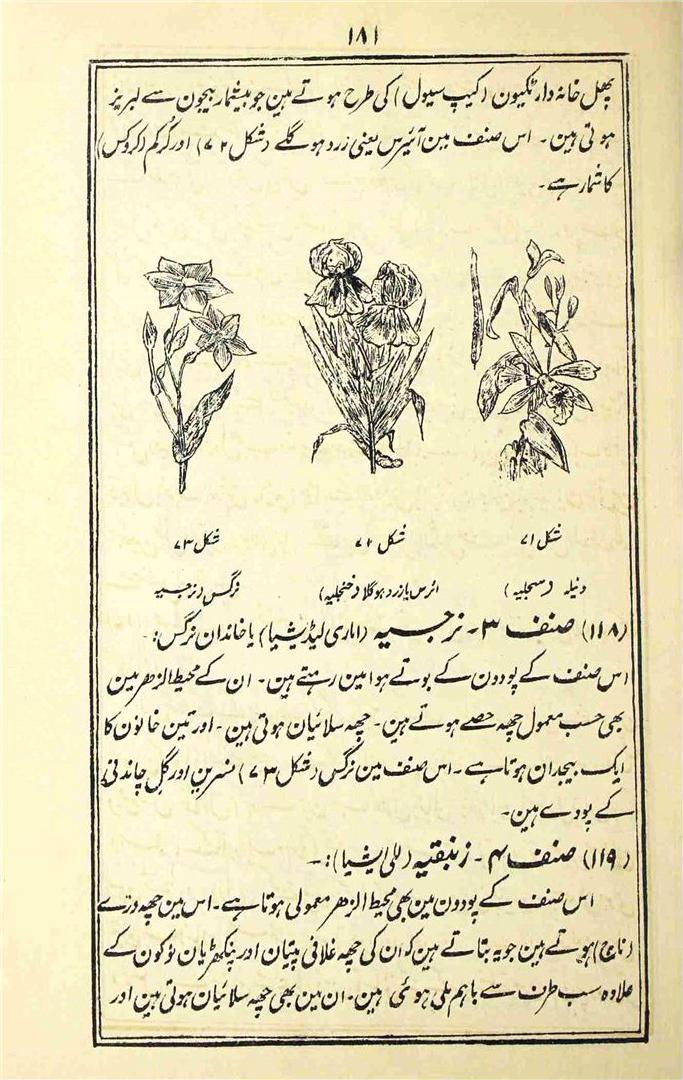 ۱۸۱
پھل خانہ دار ٹکیون (کیپ سیول) کی طرح ہوتے ہین جو بیشمار بیجون سے لبریز
ہوتی ہین۔ اس صنف مین آئیرس یعنی زرد ہوگلے (شکل ۷۲) اور کُرکم (کروکس)
کا شمار ہے۔
شکل ۷۱
شکل ۷۲
شکل ۷۳
ونیلہ (سحلبیہ)
ائرس یا زرد ہوگلا (خنجلیہ)
نرگس (نرجسیہ)
(۱۱۸) صنف ۳۔ نرجسیہ (اماری لیڈیشیا) یا خاندان نرگس:۔
اس صنف کے پودون کے بوتے ہوا مین رہتے ہین۔ ان کے محیط الزہر مین
بھی حسب معمول چھہ حصے ہوتے ہین۔ چھہ سلائیان ہوتی ہین۔ اور تین خانون کا
ایک بیجدان ہوتا ہے۔ اس صنف مین نرگس (شکل ۷۳) نسرین اور گل چاندنی
کے پودے ہین۔
(۱۱۹) صنف ۴۔ زنبقتیہ (للی ایشیا):۔
اس صنف کے پودون مین بھی محیط الزہر معمولی ہوتا ہے۔ اس مین چھہ درے
(ناچ) ہوتے ہین جو یہ بتاتے ہین کہ ان کی چھہ غلافی پتیان اور پنکھڑیان نوکون کے
علاوہ سب طرف سے باہم ملی ہوئی ہین۔ ان مین بھی چھہ سلائیان ہوتی ہین اور